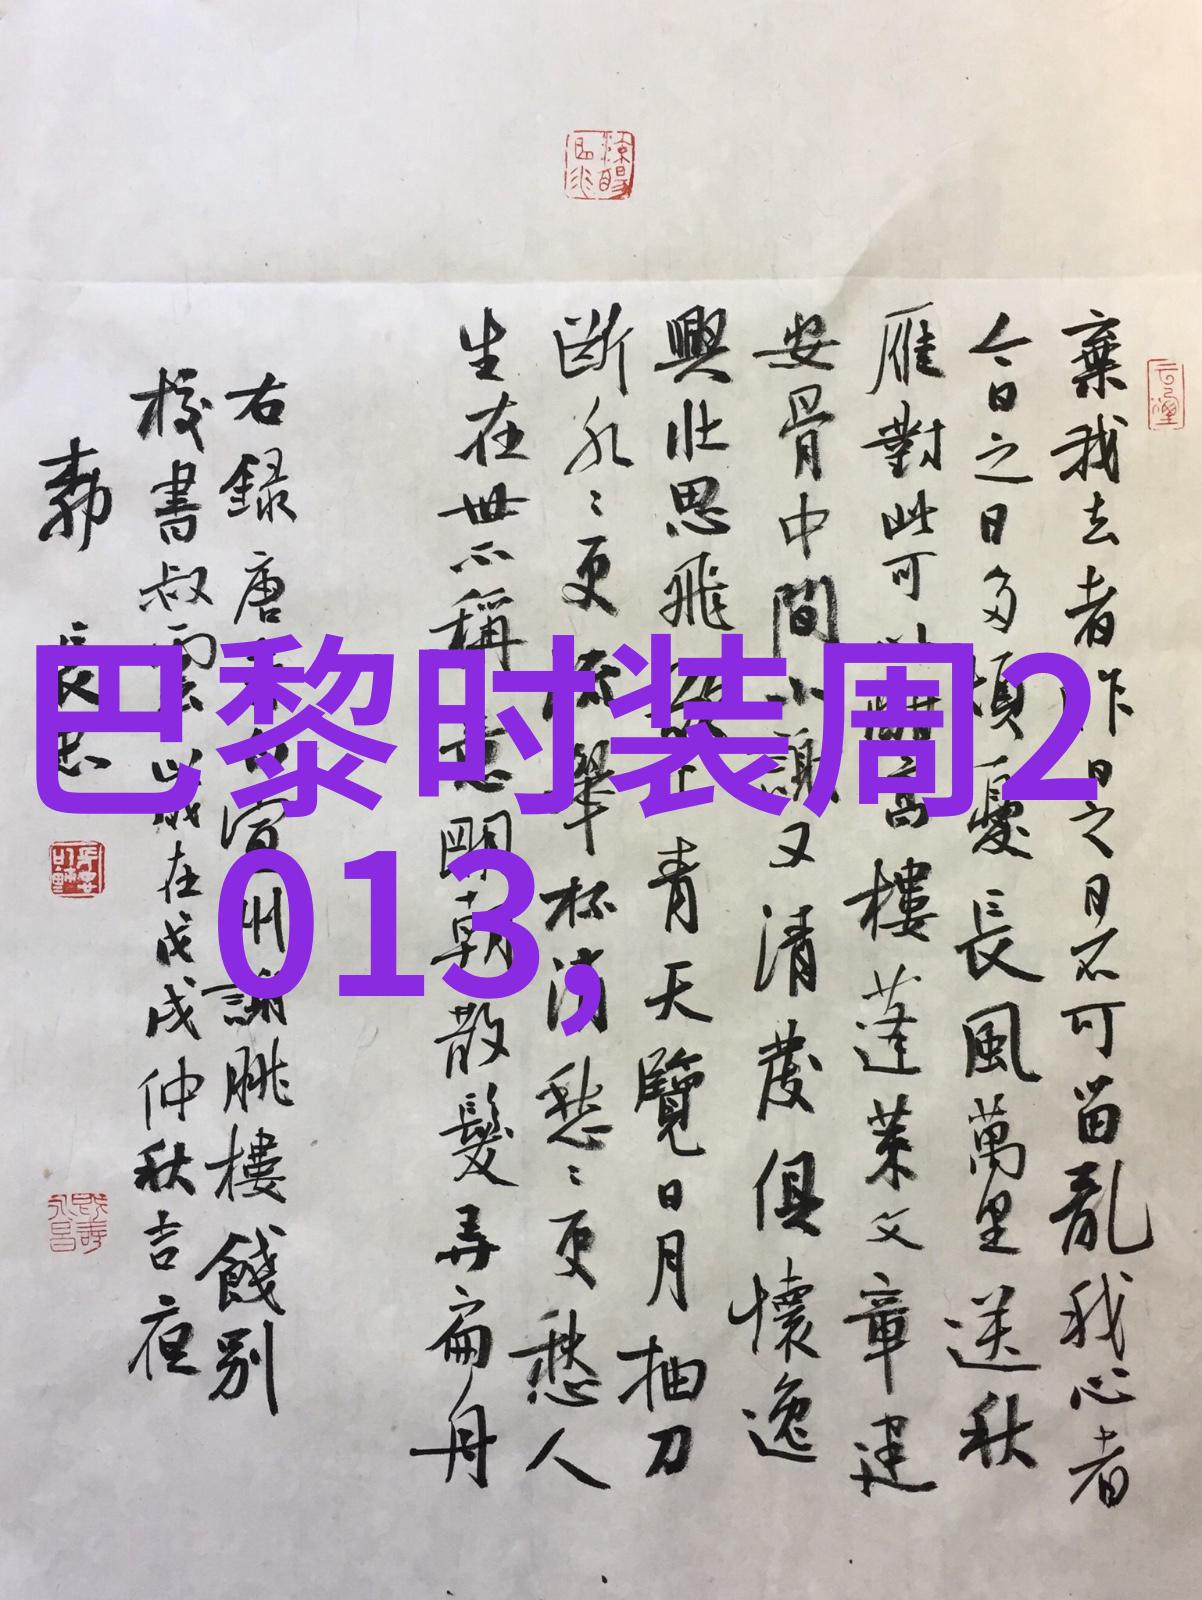 巴黎时装周2
013,
棄我去者昨日之日不可留亂我心者
今日之日多煩憂長風萬里送秋
雁對此可以酣高樓蓬萊文章建
安骨中間小謝又清發俱懷逸
興壯思飛欲上青天覽日月抽刀
斷水〻更流舉杯消愁〻更愁人
生在世不稱意明朝散髮弄扁舟
右録唐李白宣州謝朓樓餞別
校書叔雲歲在戊戌仲秋吉夜